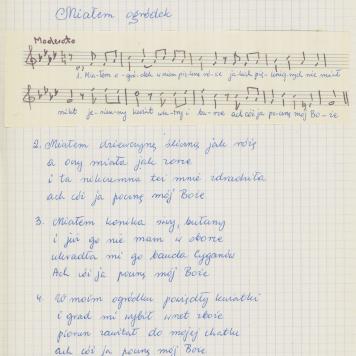 Miałem ogródek
Moderato
1. Mia-łem o-gró-dek w nim piękne ró-że ja-kich pię-kniej-szych nie miał
nikt je-sien-ny kwint i bu-rze ach cóż ja pocznę mój Bo-że
2. Miałem dziewczynę śliczną jak różę
a oczy miała jak zorze
i ta nikczemna też mnie zdradziła
ach cóż ja pocznę mój Boże
3. Miałem konika siwy, bułany
i już go nie mam w oborze
ukradła mi go banda Cyganów
Ach cóż ja pocznę mój Boże
4. W moim ogródku powiędły kwiatki
i grad mi wybił wnet zboże
piorun zawitał do mojej chatki
ach cóż ja pocznę mój Boże